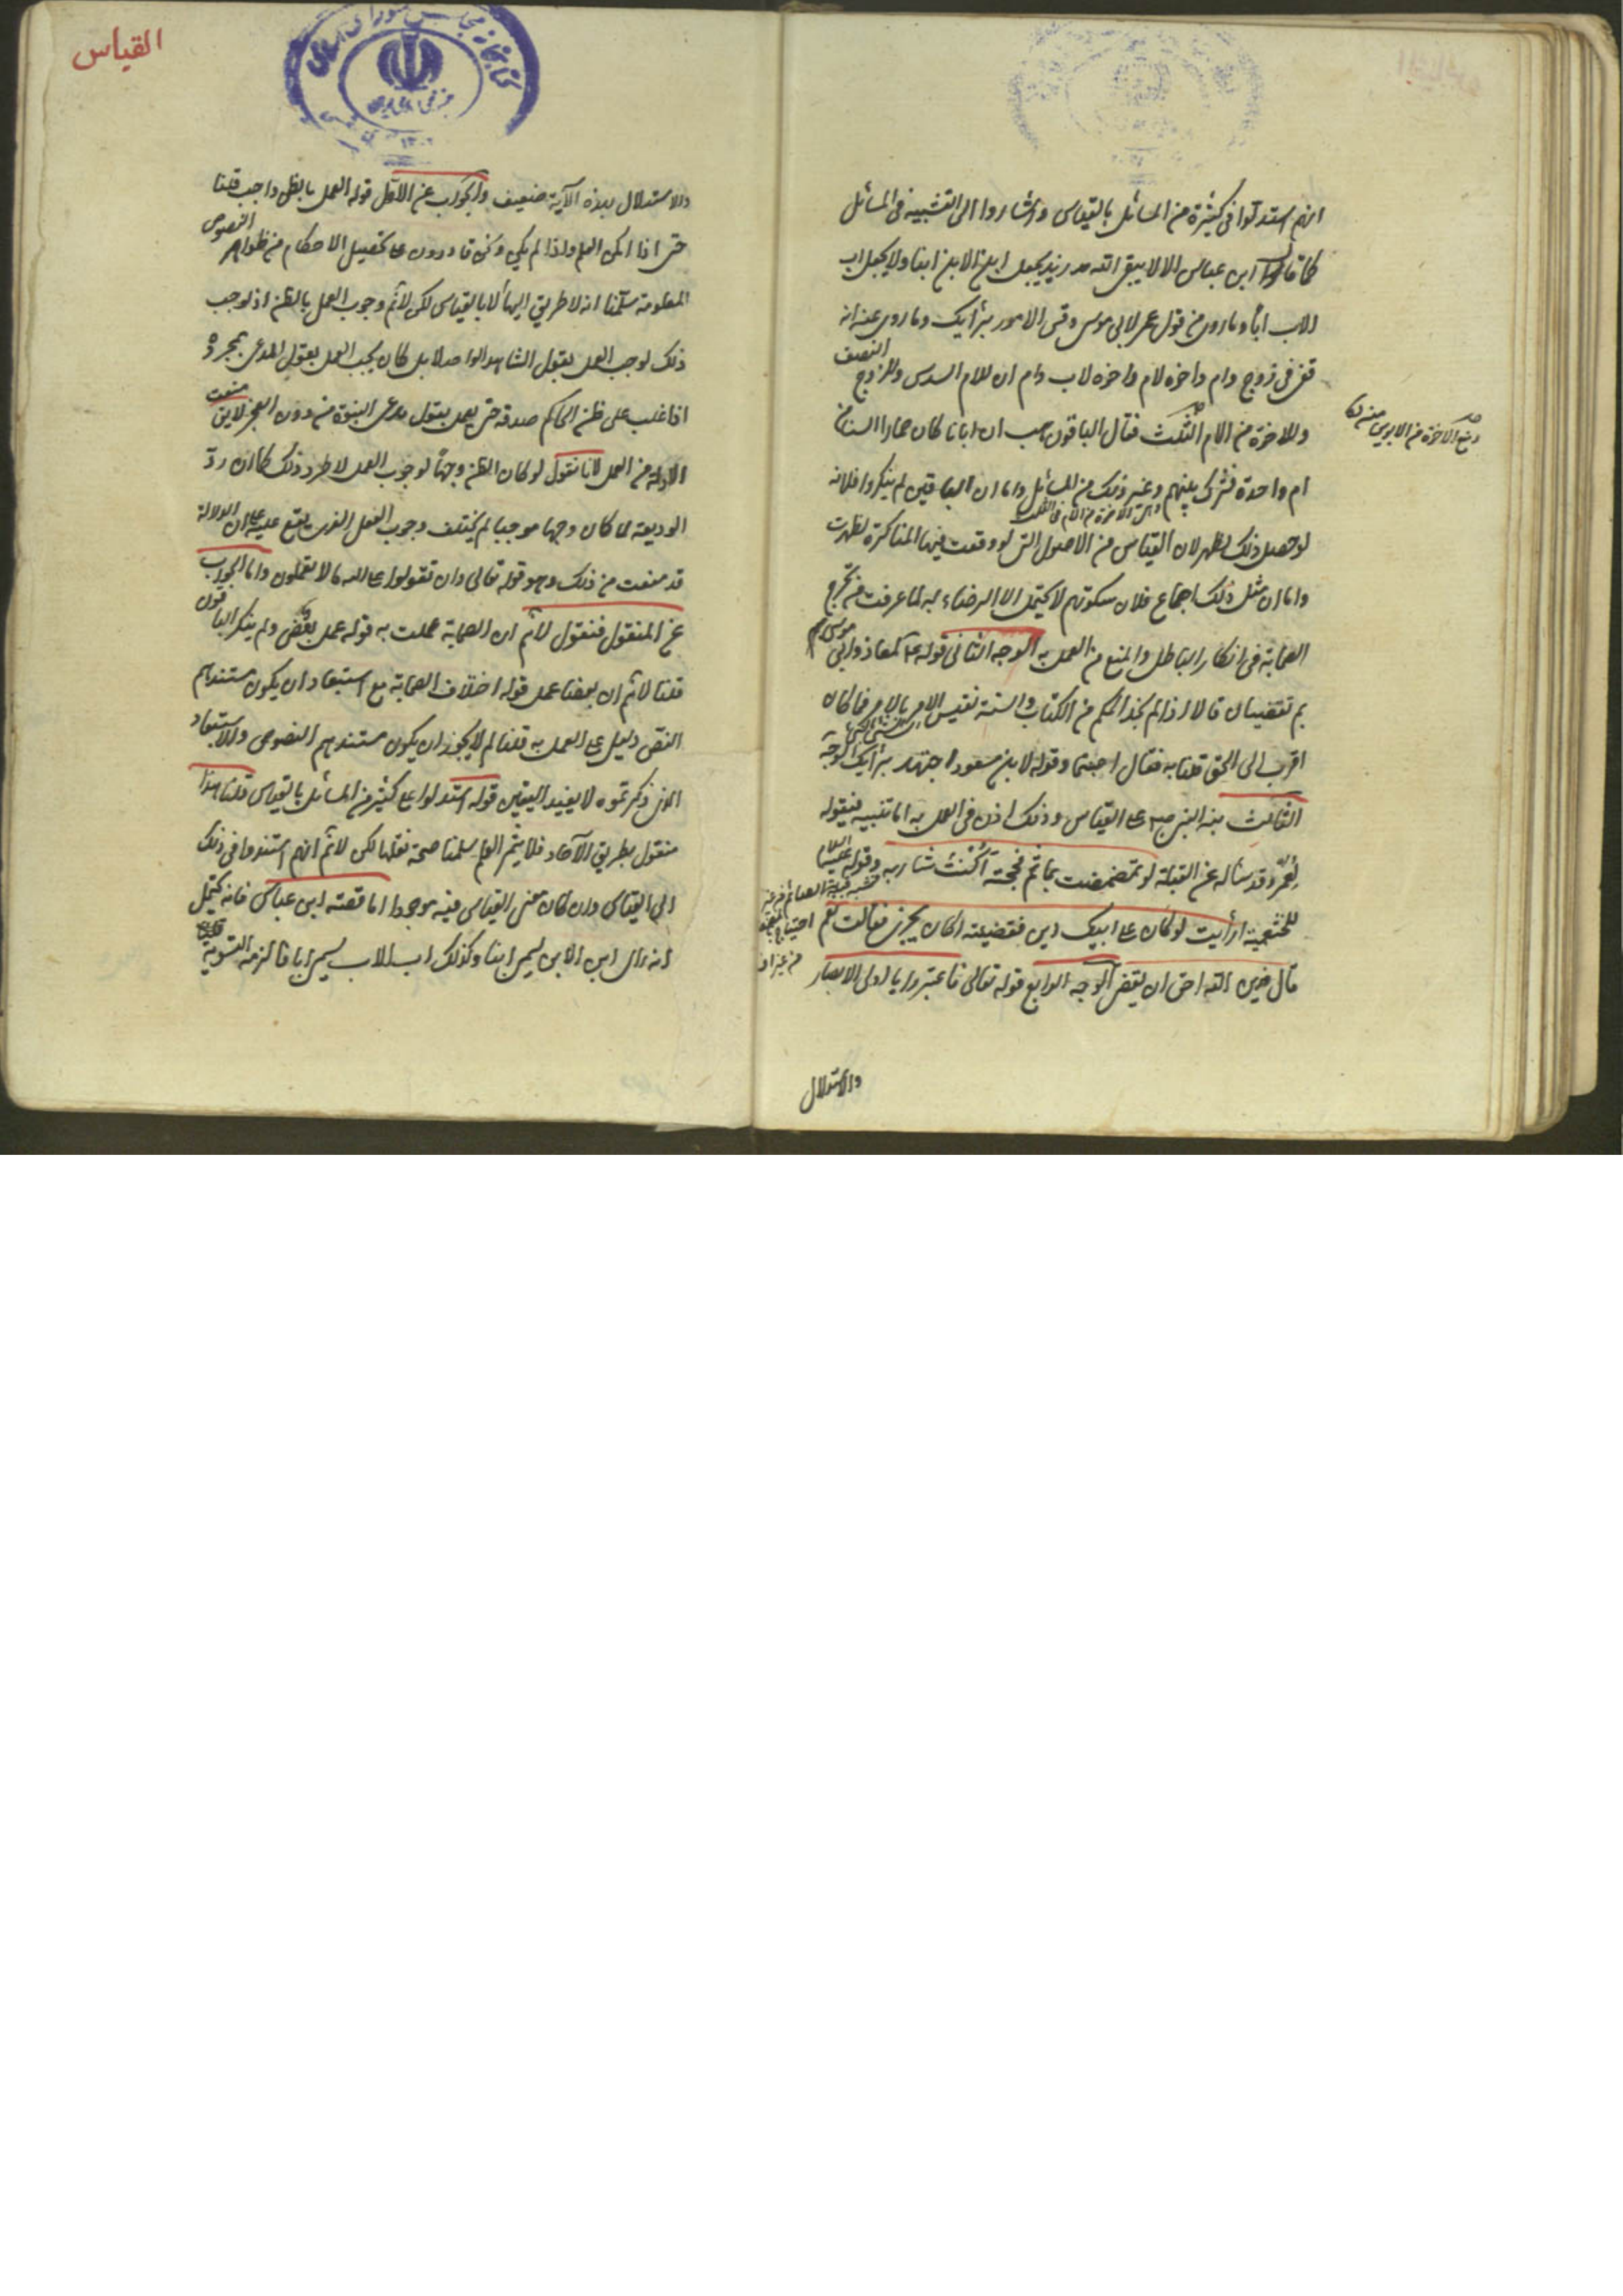 انهم استدلوا فى كثيرة من المسائل بالقياس واشاروا الى التشبيه فى المسائل
كما قال ابن عباس الا لا يتقى الله زيد يجعل ابن الابن ابنا ولا يجعل اب
الاب ابا وما روى من قول عمر لابى موسى وقس الامور برأيك وما روى عنه انه
قضى فى زوج وام واخوة لام واخوة لاب وام ان للام السدس وللزوج النصف
وللاخوة من الام الثلث فقال الباقون هب ان ابانا كان حمارا السنا من
ام واحدة فشرك بينهم وغير ذلك من المسائل واما ان الباقين لم ينكروا فلانه
لو حصل ذلك لظهر لان القياس من الاصول التى لو وقعت فيها المناكرة لظهرت
واما ان مثل ذلك اجماع فلان سكوتهم لا يحتمل الا الرضاء به لما عرفت من تحرج
الصحابة فى انكار الباطل والمنع من العمل به الوجه الثانى قوله ع لمعاذ وابى موسى
بم تقضيان قالا اذا لم نجد الحكم من الكتاب والسنة نقيس الامر بالامر فما كان
اقرب الى الحق قلنا به فقال اصبتما وقوله لابن مسعود اجتهد برأيك الوجه
الثالث نبه النبى ص على القياس وذلك اذن فى العمل به اما تنبيه فبقوله
لعمر وقد سئاله عن القبلة لو تمضمضت بماء ثم مججته أكنت شاربه وقوله
للخثعمية ارأيت لو كان على ابيك دين فقضيته اكان يجزى فقالت نعم
قال فدين الله احق ان يقضى الوجه الرابع قوله تعالى فاعتبروا يا اولى الابصار
والاستدلال
القياس
والاستدلال بهذه الآية ضعيف والجواب عن الاول قوله العمل بالظن واجب قلنا
حتى اذا امكن العلم واذا لم يكن ونحن قادرون على تحصيل الاحكام من ظواهر النصوص
المعلومة سلمنا انه لا طريق اليها الا بالقياس لكن لانم وجوب العمل بالظن اذ لو وجب
ذلك لوجب العمل بقول الشاهد الواحد لا بل كان يجب العمل بقول المدعى بمجرده
اذا غلب على ظن الحاكم صدقه حتى يعمل بقول مدعى النبوة من دون المعجز لا يق منعت
الادلة من العمل لانا نقول لو كان الظن وجها لوجوب العمل لاطرد ذلك كما ان رد
الوديعة لما كان وجها موجبا لم يختلف وجوب الفعل الذى يقع عليه على ان الدلالة
قد منعت من ذلك وهو قوله تعالى وان تقولوا على الله ما لا تعلمون واما الجواب
عن المنقول فنقول لانم ان الصحابة عملت به قوله عمل بعض ولم ينكر الباقون
قلنا لانم ان بعضنا عمل قوله اختلاف الصحابة مع استبعاد ان يكون مستندهم
النص دليل على العمل به قلنا لم لا يجوز ان يكون مستندهم النصوص والاستبعاد
الذى ذكرتموه لا يفيد اليقين قوله استدلوا على كثير من المسائل بالقياس قلنا هذا
منقول بطريق الآحاد فلا يثمر العلم سلمنا صحة نقلها لكن لانم انهم استندوا فى ذلك
الى القياس وان كان معنى القياس فيه موجودا اما قصة ابن عباس فانه يحتمل
انه راى ابن الابن يسمى ابنا وكذلك اب الاب يسمى ابا فالزمه التسوية